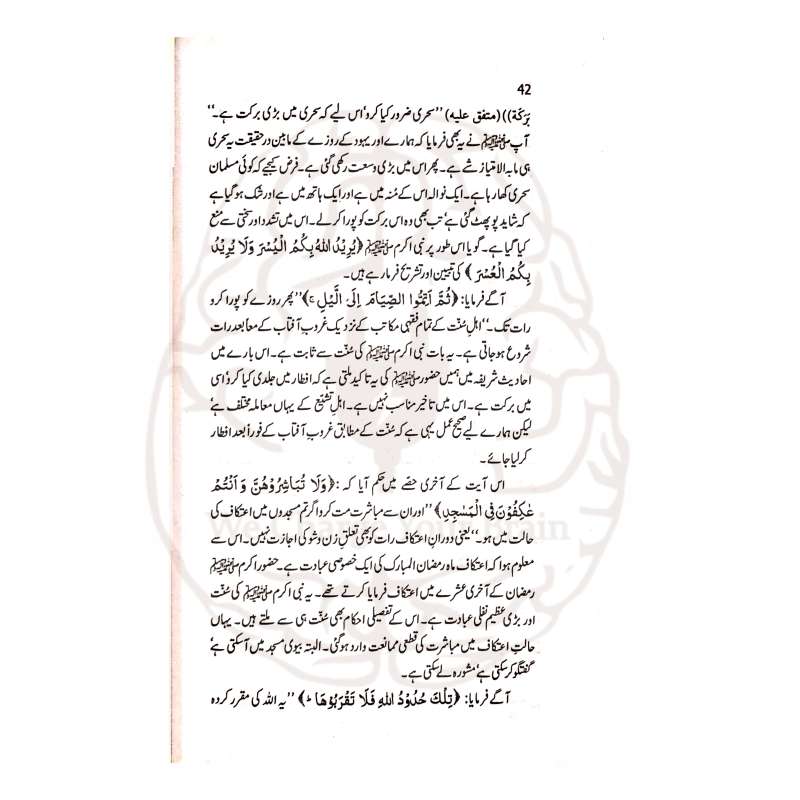 42
بَرَكَة)) (متفق علیه) ’’سحری ضرور کیا کرو‘ اس لیے کہ سحری میں بڑی برکت ہے۔‘‘
آپ ﷺ نے یہ بھی فرمایا کہ ہمارے اور یہود کے روزے کے مابین درحقیقت یہ سحری
ہی مابہ الامتیاز شے ہے۔ پھر اس میں بڑی وسعت رکھی گئی ہے۔ فرض کیجیے کہ کوئی مسلمان
سحری کھا رہا ہے۔ ایک نوالہ اس کے مُنہ میں ہے اور ایک ہاتھ میں ہے اور شک ہو گیا ہے
کہ شاید پو پھٹ گئی ہے‘ تب بھی وہ اس برکت کو پورا کر لے۔ اس میں تشدد اور سختی سے منع
کیا گیا ہے۔ گویا اس طور پر نبی اکرم ﷺ ﴿يُرِيْدُ اللّٰهُ بِكُمُ الْيُسْرَ وَلَا يُرِيْدُ
بِكُمُ الْعُسْرَ﴾ کی تبیین اور تشریح فرما رہے ہیں۔
آگے فرمایا: ﴿ثُمَّ اَتِمُّوا الصِّيَامَ اِلَى الَّيْلِ ۚ﴾ ’’پھر روزے کو پورا کرو
رات تک۔‘‘ اہلِ سُنّت کے تمام فقہی مکاتب کے نزدیک غروبِ آفتاب کے معاً بعد رات
شروع ہو جاتی ہے۔ یہ بات نبی اکرم ﷺ کی سُنّت سے ثابت ہے۔ اس بارے میں
احادیث شریفہ میں ہمیں حضور ﷺ کی یہ تاکید ملتی ہے کہ افطار میں جلدی کیا کرو‘ اسی
میں برکت ہے۔ اس میں تاخیر مناسب نہیں ہے۔ اہلِ تشیّع کے یہاں معاملہ مختلف ہے‘
لیکن ہمارے لیے صحیح عمل یہی ہے کہ سُنّت کے مطابق غروبِ آفتاب کے فوراً بعد افطار
کر لیا جائے۔
اس آیت کے آخری حصّے میں حکم آیا کہ: ﴿وَلَا تُبَاشِرُوْهُنَّ وَاَنْتُمْ
عٰكِفُوْنَ فِى الْمَسٰجِدِ﴾ ’’اور ان سے مباشرت مت کرو اگر تم مسجدوں میں اعتکاف کی
حالت میں ہو۔‘‘ یعنی دورانِ اعتکاف رات کو بھی تعلقِ زن و شو کی اجازت نہیں۔ اس سے
معلوم ہوا کہ اعتکاف ماہِ رمضان المبارک کی ایک خصوصی عبادت ہے۔ حضور اکرم ﷺ
رمضان کے آخری عشرے میں اعتکاف فرمایا کرتے تھے۔ یہ نبی اکرم ﷺ کی سُنّت
اور بڑی عظیم نفلی عبادت ہے۔ اس کے تفصیلی احکام بھی سُنّت ہی سے ملتے ہیں۔ یہاں
حالتِ اعتکاف میں مباشرت کی قطعی ممانعت وارد ہو گئی۔ البتہ بیوی مسجد میں آ سکتی ہے‘
گفتگو کر سکتی ہے‘ مشورہ لے سکتی ہے۔
آگے فرمایا: ﴿تِلْكَ حُدُوْدُ اللّٰهِ فَلَا تَقْرَبُوْهَا ۭ﴾ ’’یہ اللہ کی مقرر کردہ